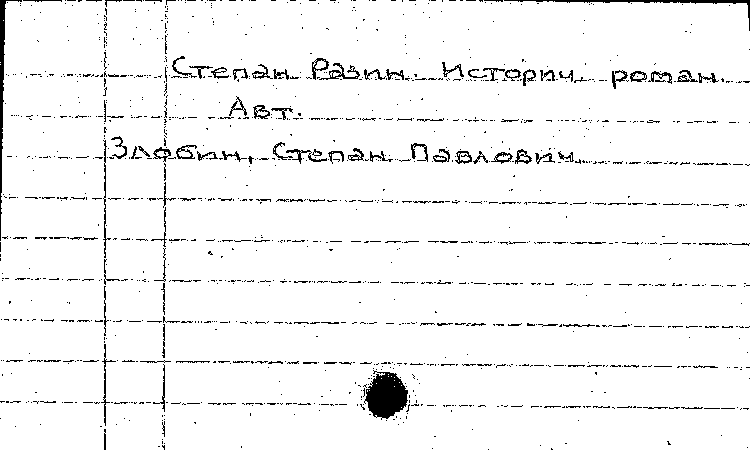 Степан Разин. Историч. роман.
Авт.
Злобин, Степан Павлович.